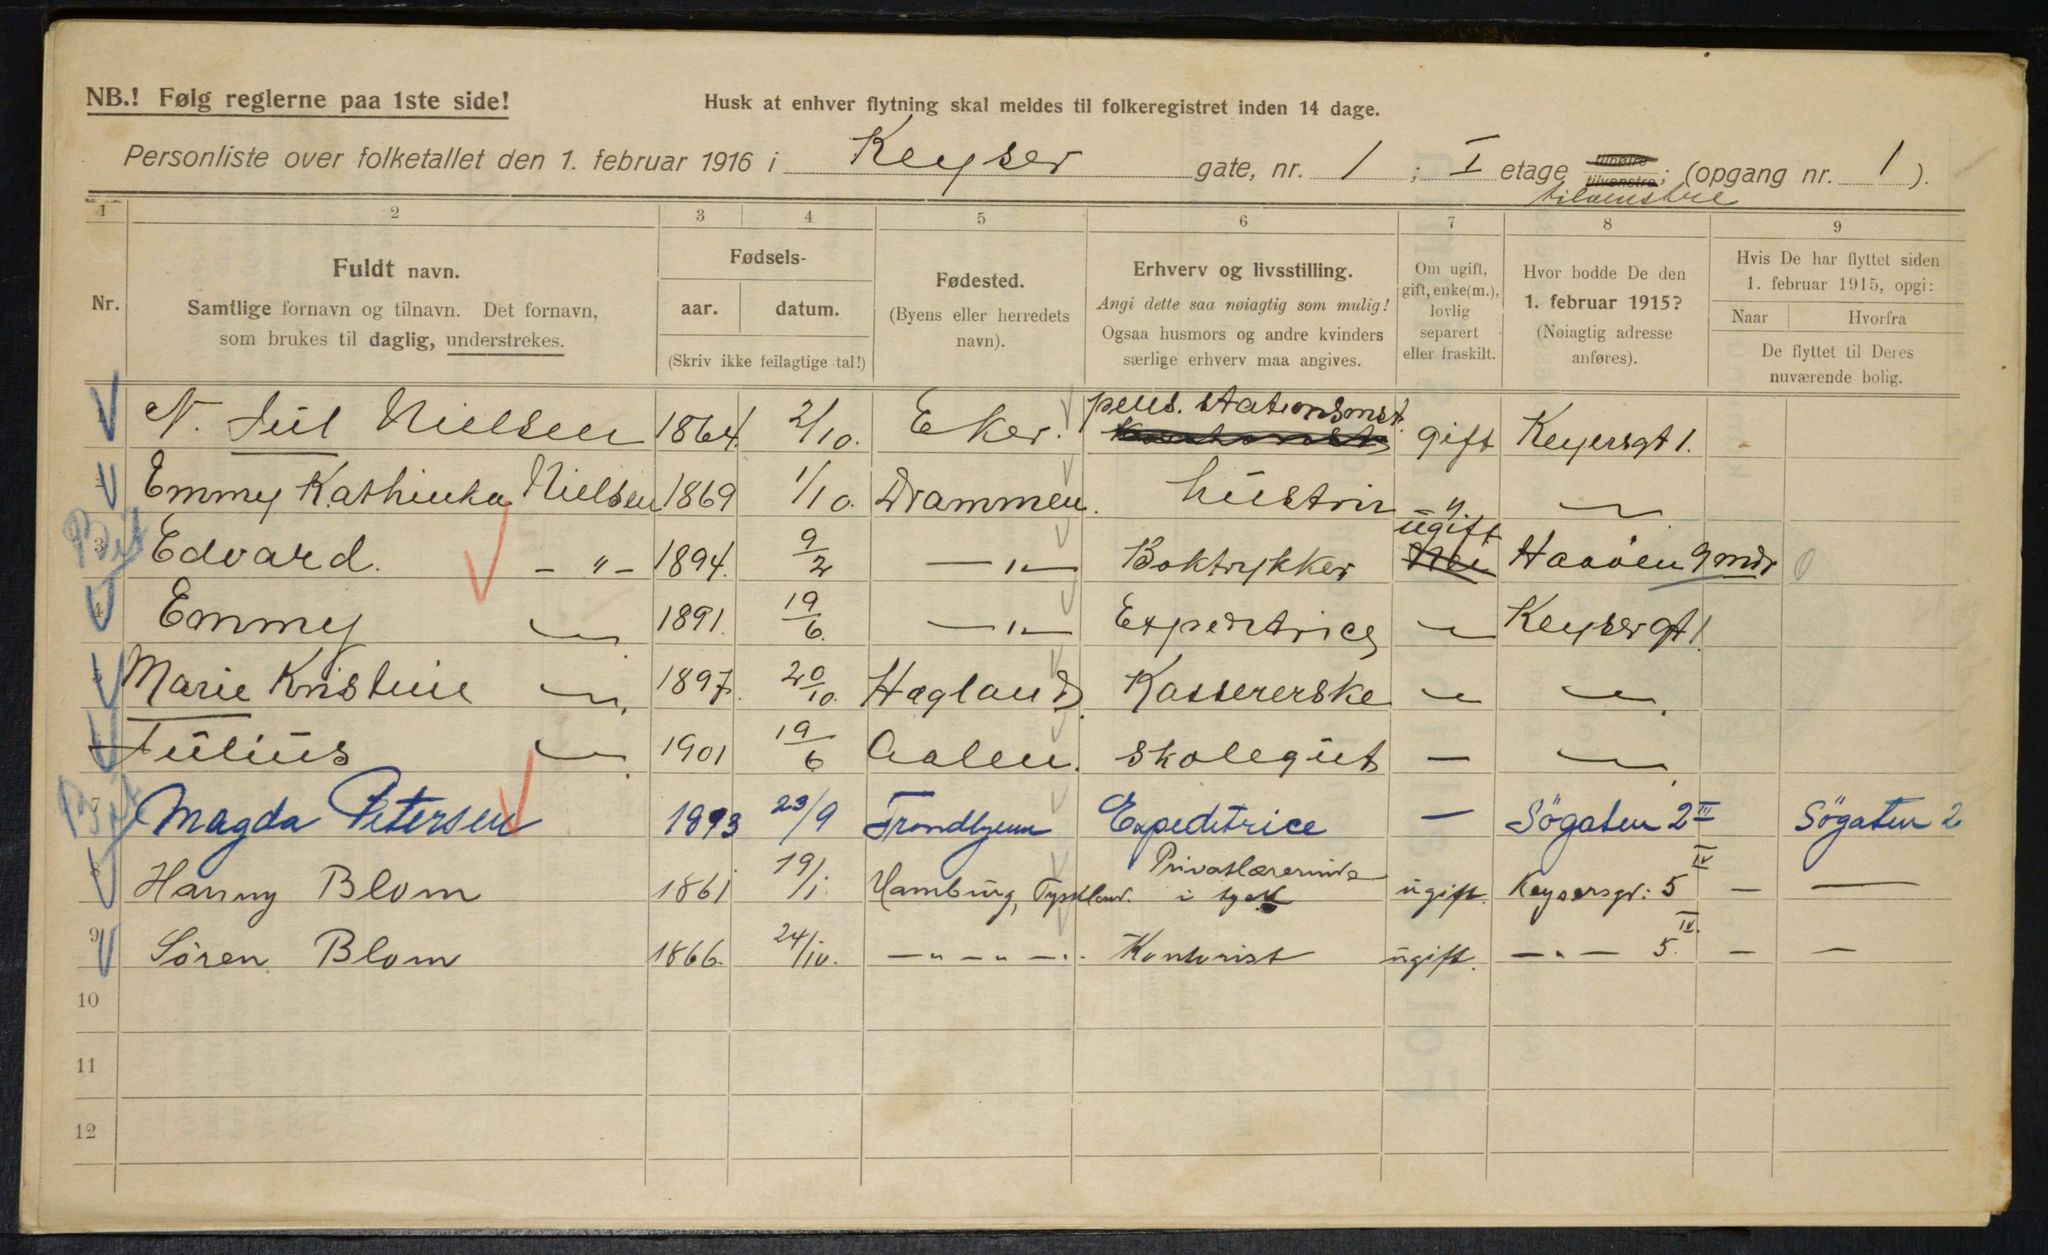 NB.! Følg reglerne paa 1ste side!
Husk at enhver flytning skal meldes til folkeregistret inden 14 dage.
Personliste over folketallet den 1. februar 1916 i Keyser gate, nr. 1 ; I etage tilvenstre; (opgang nr. 1 ).
tilvenstre
1 2 3 4 5 6 7 8 9
Nr.
Fuldt navn.
Samtlige fornavn og tilnavn. Det fornavn, som brukes til daglig, understrekes.
Fødsels-
aar. datum.
(Skriv ikke feilagtige tal!)
Fødested.
(Byens eller herredets navn).
Erhverv og livsstilling.
Angi dette saa nøiagtig som mulig!
Ogsaa husmors og andre kvinders særlige erhverv maa angives.
Om ugift, gift, enke(m.), lovlig separert eller fraskilt.
Hvor bodde De den 1. februar 1915?
(Nøiagtig adresse anføres).
Hvis De har flyttet siden 1. februar 1915, opgi:
Naar Hvorfra
De flyttet til Deres nuværende bolig.
N. Jul Nielsen 1864. 2/10. Eker. pens. stationsmst. gift Keyersgt 1. -
Emmy Kathinka Nielsen 1869 1/10. Drammen. hustru " —
3 Edvard. - " - 1894. 9/2 — " — Boktrykker ugift Haaöen 9 mdr 0
4 Emmy — 1891. 19/6. — " — Expeditrice — Keyser gt 1.
Marie Kristine — 1897. 20/10. Hægland. Kassererske — —
Julius — 1901 19/6 Aalen. Skolegut — —
7 Magda Petersen 1893 23/9 Trondhjem Expeditrice — Sögaten 2 III Sögaten 2
8 Hanny Blom 1861 19/1. Hamburg, Tyskland. Privatlærerinde i tysk ugift. Keysersgt: 5 IV — —
9 Søren Blom 1866. 24/10. — " — " — " . Kontorist ugift. — " — 5. IV. — —
10
11
12